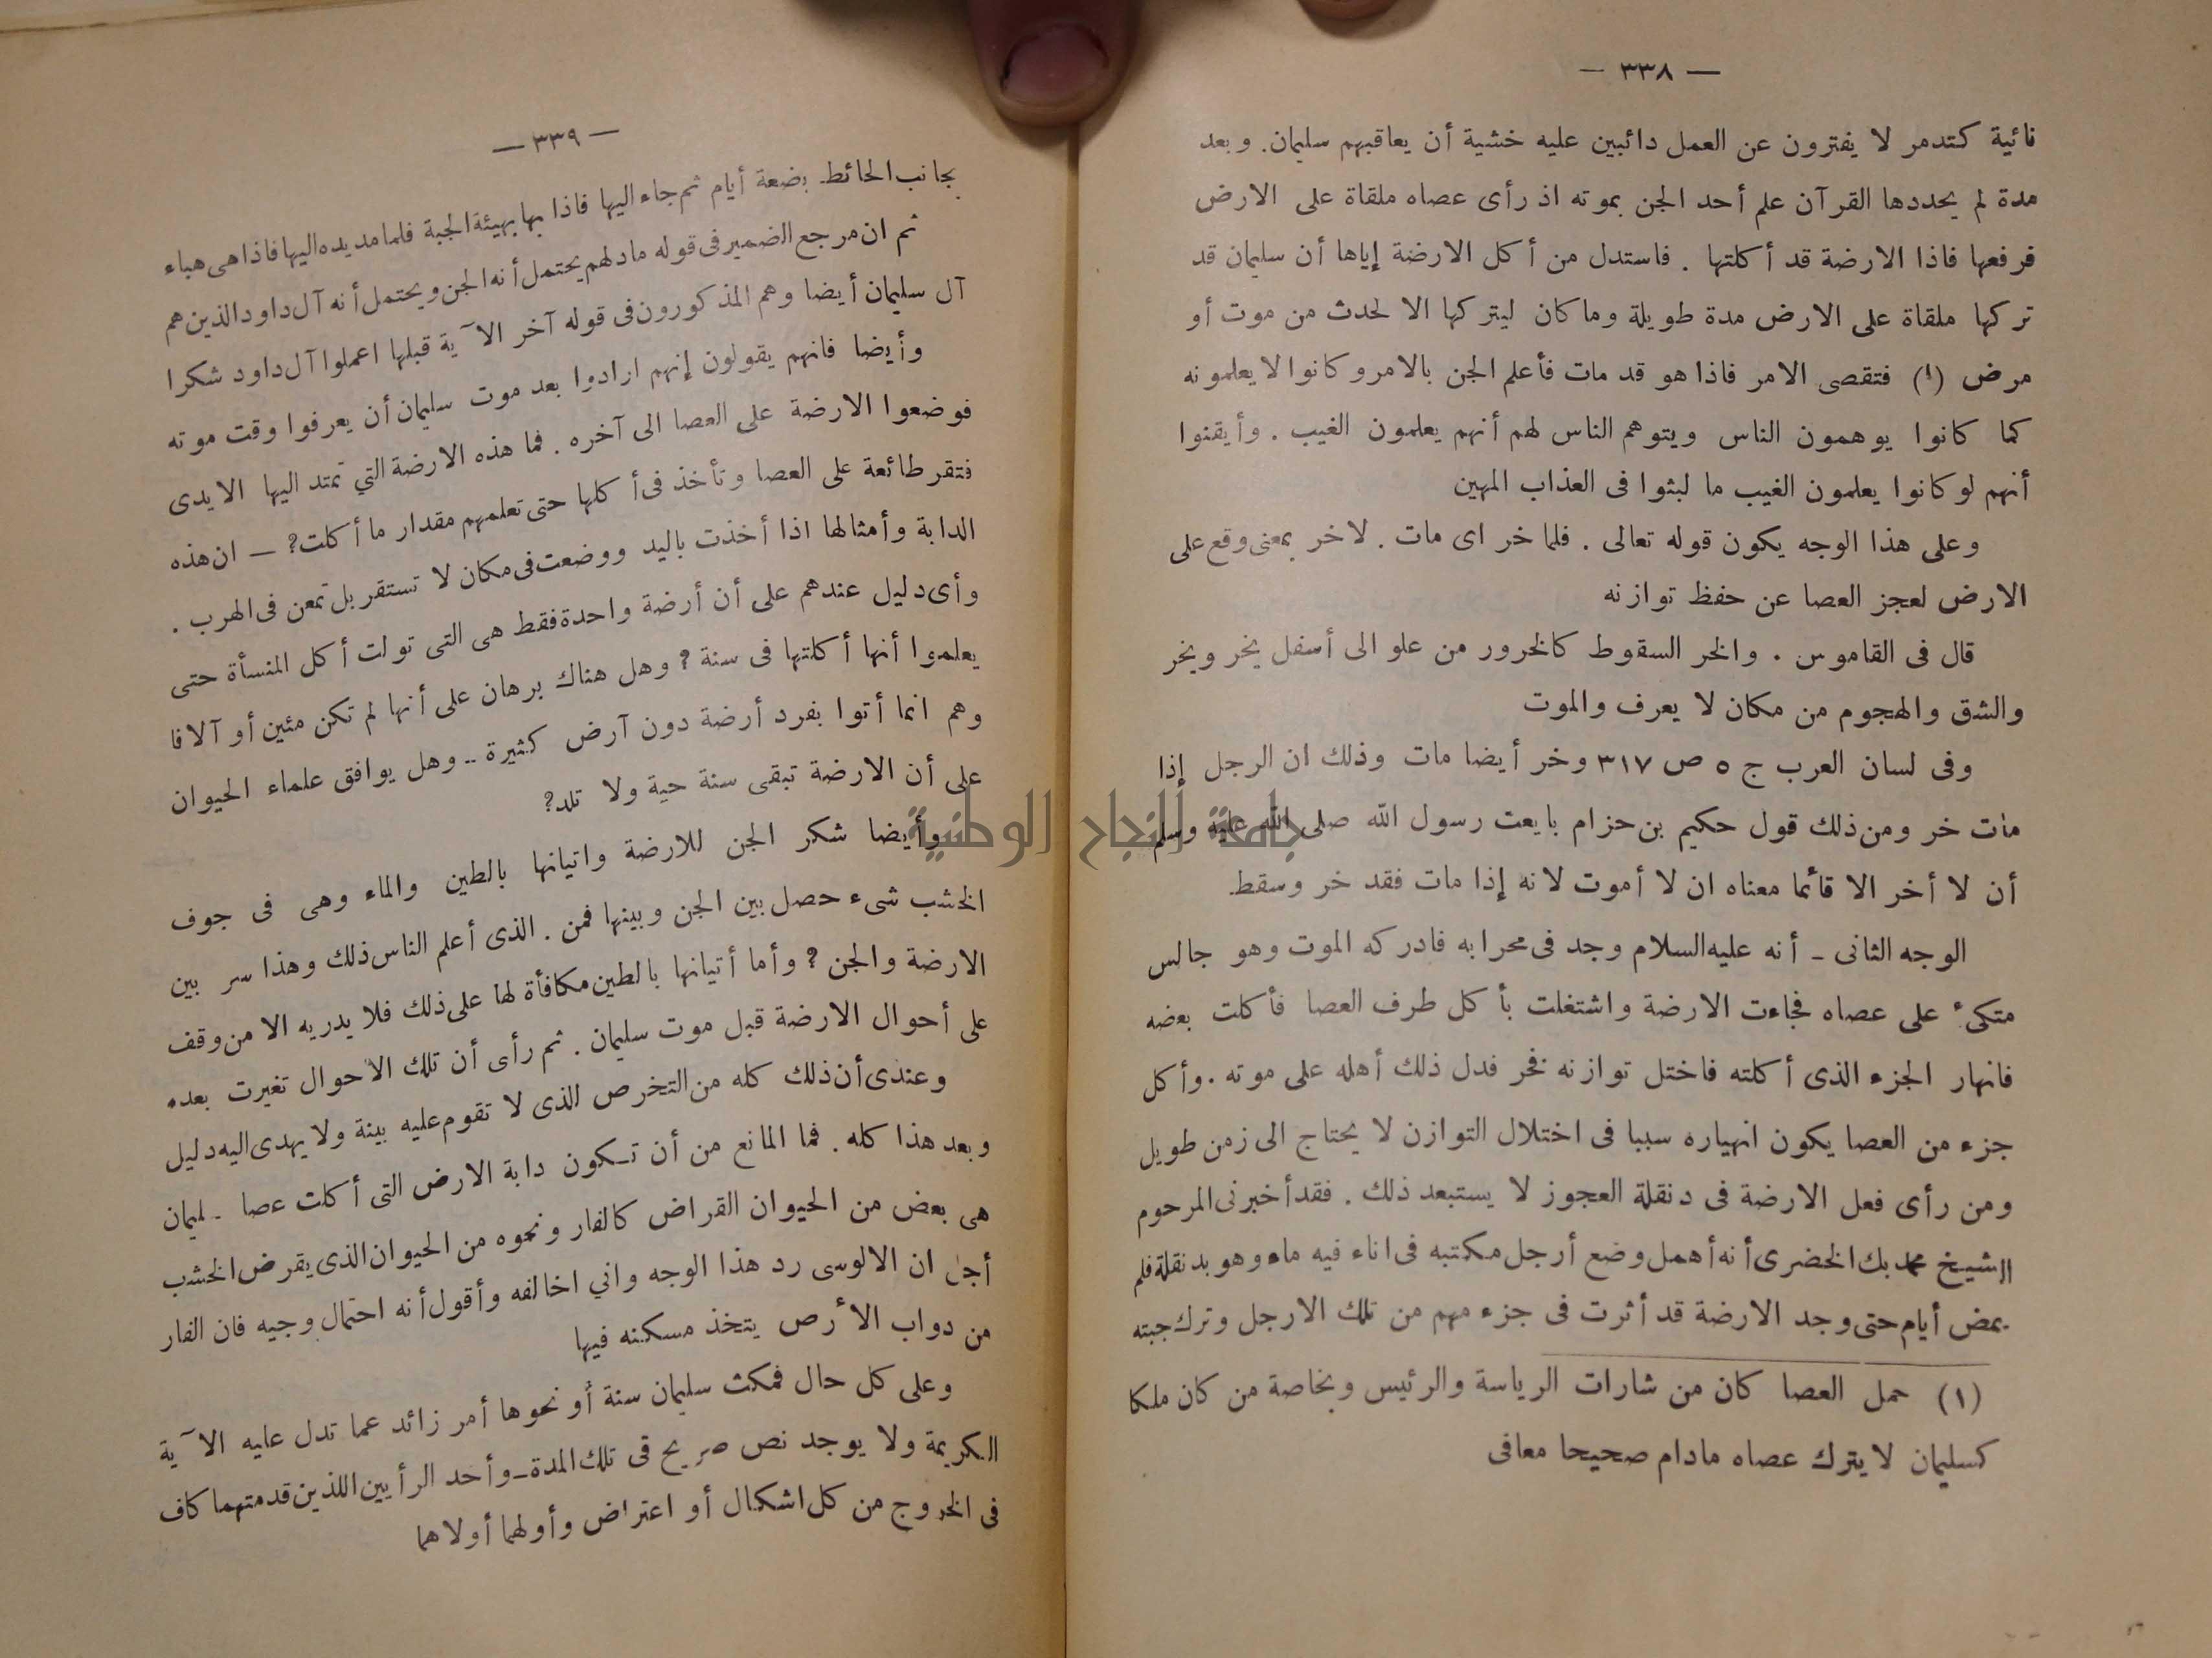 — ٣٣٨ —
نائية كتدمر لا يفترون عن العمل دائبين عليه خشية أن يعاقبهم سليمان. وبعد
مدة لم يحددها القرآن علم أحد الجن بموته اذ رأى عصاه ملقاة على الارض
فرفعها فاذا الارضة قد أكلتها . فاستدل من أكل الارضة إياها أن سليمان قد
تركها ملقاة على الارض مدة طويلة وما كان ليتركها الا لحدث من موت أو
مرض (١) فتقصى الامر فاذا هو قد مات فأعلم الجن بالامر وكانوا لا يعلمونه
كما كانوا يوهمون الناس ويتوهم الناس لهم أنهم يعلمون الغيب . وأيقنوا
أنهم لو كانوا يعلمون الغيب ما لبثوا فى العذاب المهين
وعلى هذا الوجه يكون قوله تعالى . فلما خر اى مات . لاخر بمعنى وقع على
الارض لعجز العصا عن حفظ توازنه
قال فى القاموس . والخر السقوط كالخرور من علو الى أسفل يخر ويخر
والشق والهجوم من مكان لا يعرف والموت
وفى لسان العرب ج ٥ ص ٣١٧ وخر أيضا مات وذلك ان الرجل إذا
مات خر ومن ذلك قول حكيم بن حزام بايعت رسول الله صلى الله عليه وسلم
أن لا أخر الا قائما معناه ان لا أموت لانه إذا مات فقد خر وسقط
الوجه الثانى ـ أنه عليه السلام وجد فى محرابه فادركه الموت وهو جالس
متكئ على عصاه فجاءت الارضة واشتغلت بأكل طرف العصا فأكلت بعضه
فانهار الجزء الذى أكلته فاختل توازنه فخر فدل ذلك أهله على موته . وأكل
جزء من العصا يكون انهياره سببا فى اختلال التوازن لا يحتاج الى زمن طويل
ومن رأى فعل الارضة فى دنقلة العجوز لا يستبعد ذلك . فقد أخبرنى المرحوم
الشيخ محمد بك الخضرى أنه أهمل وضع أرجل مكتبه فى اناء فيه ماء وهو بدنقلة فلم
يمض أيام حتى وجد الارضة قد أثرت فى جزء مهم من تلك الارجل وترك جبته
(١) حمل العصا كان من شارات الرياسة والرئيس وبخاصة من كان ملكا
كسليمان لا يترك عصاه مادام صحيحا معافى
— ٣٣٩ —
بجانب الحائط بضعة أيام ثم جاء اليها فاذا بها بهيئة الجبة فلما مد يده اليها فاذا هى هباء
ثم ان مرجع الضمير فى قوله ما دلهم يحتمل أنه الجن ويحتمل أنه آل داود الذين هم
آل سليمان أيضا وهم المذكورون فى قوله آخر الآية قبلها اعملوا آل داود شكرا
وأيضا فانهم يقولون إنهم ارادوا بعد موت سليمان أن يعرفوا وقت موته
فوضعوا الارضة على العصا الى آخره . فما هذه الارضة التي تمتد اليها الايدى
فتقر طائعة على العصا وتأخذ فى أكلها حتى تعلمهم مقدار ما أكلت؟ — ان هذه
الدابة وأمثالها اذا أخذت باليد ووضعت فى مكان لا تستقر بل تمعن فى الهرب .
وأى دليل عندهم على أن أرضة واحدة فقط هى التى تولت أكل المنسأة حتى
يعلموا أنها أكلتها فى سنة ؟ وهل هناك برهان على أنها لم تكن مئين أو آلافا
وهم انما أتوا بفرد أرضة دون آرض كثيرة .. وهل يوافق علماء الحيوان
على أن الارضة تبقى سنة حية ولا تلد؟
وأيضا شكر الجن للارضة واتيانها بالطين والماء وهى فى جوف
الخشب شىء حصل بين الجن وبينها فمن . الذى أعلم الناس ذلك وهذا سر بين
الارضة والجن ؟ وأما أتيانها بالطين مكافأة لها على ذلك فلا يدريه الا من وقف
على أحوال الارضة قبل موت سليمان . ثم رأى أن تلك الاحوال تغيرت بعده
وعندى أن ذلك كله من التخرص الذى لا تقوم عليه بينة ولا يهدى اليه دليل
وبعد هذا كله . فما المانع من أن تكون دابة الارض التى أكلت عصا سليمان
هى بعض من الحيوان القراض كالفار ونحوه من الحيوان الذى يقرض الخشب
أجل ان الالوسى رد هذا الوجه واني اخالفه وأقول أنه احتمال وجيه فان الفار
من دواب الأرص يتخذ مسكنه فيها
وعلى كل حال فمكث سليمان سنة أو نحوها أمر زائد عما تدل عليه الآية
الكريمة ولا يوجد نص صريح فى تلك المدة ـ وأحد الرأيين اللذين قدمتهما كاف
فى الخروج من كل اشكال أو اعتراض وأولهما أولاهما
جامعة النجاح الوطنية